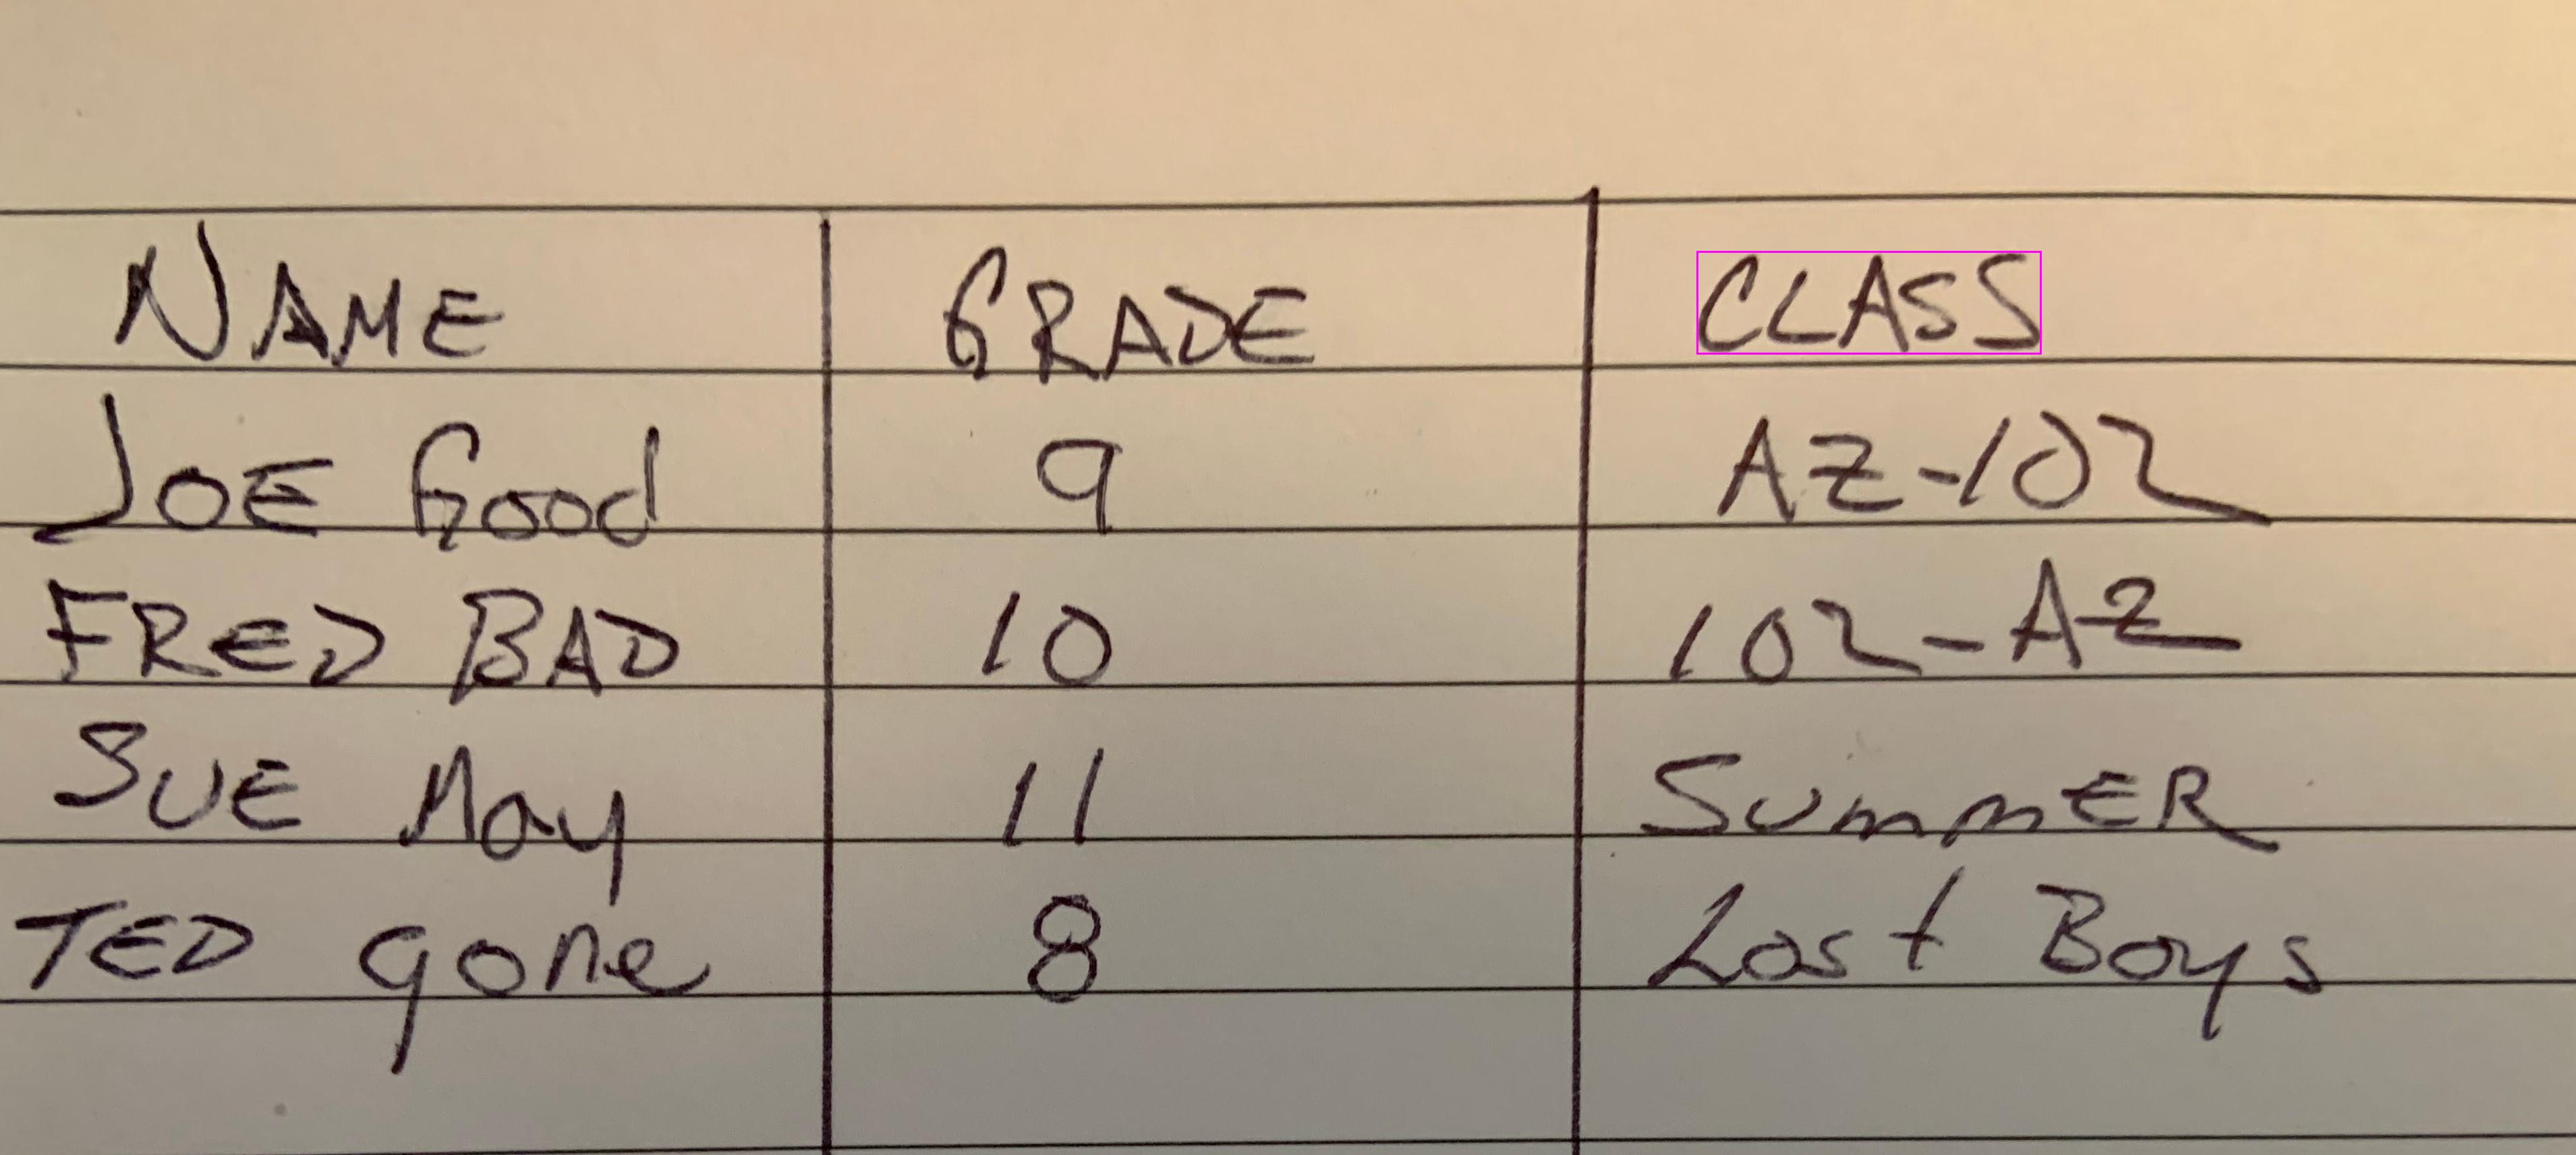 NAME GRADE CLASS
JOE Good 9 AZ-102
FRED BAD 10 102-AZ
SUE May 11 SummER
TED gone 8 Lost Boys